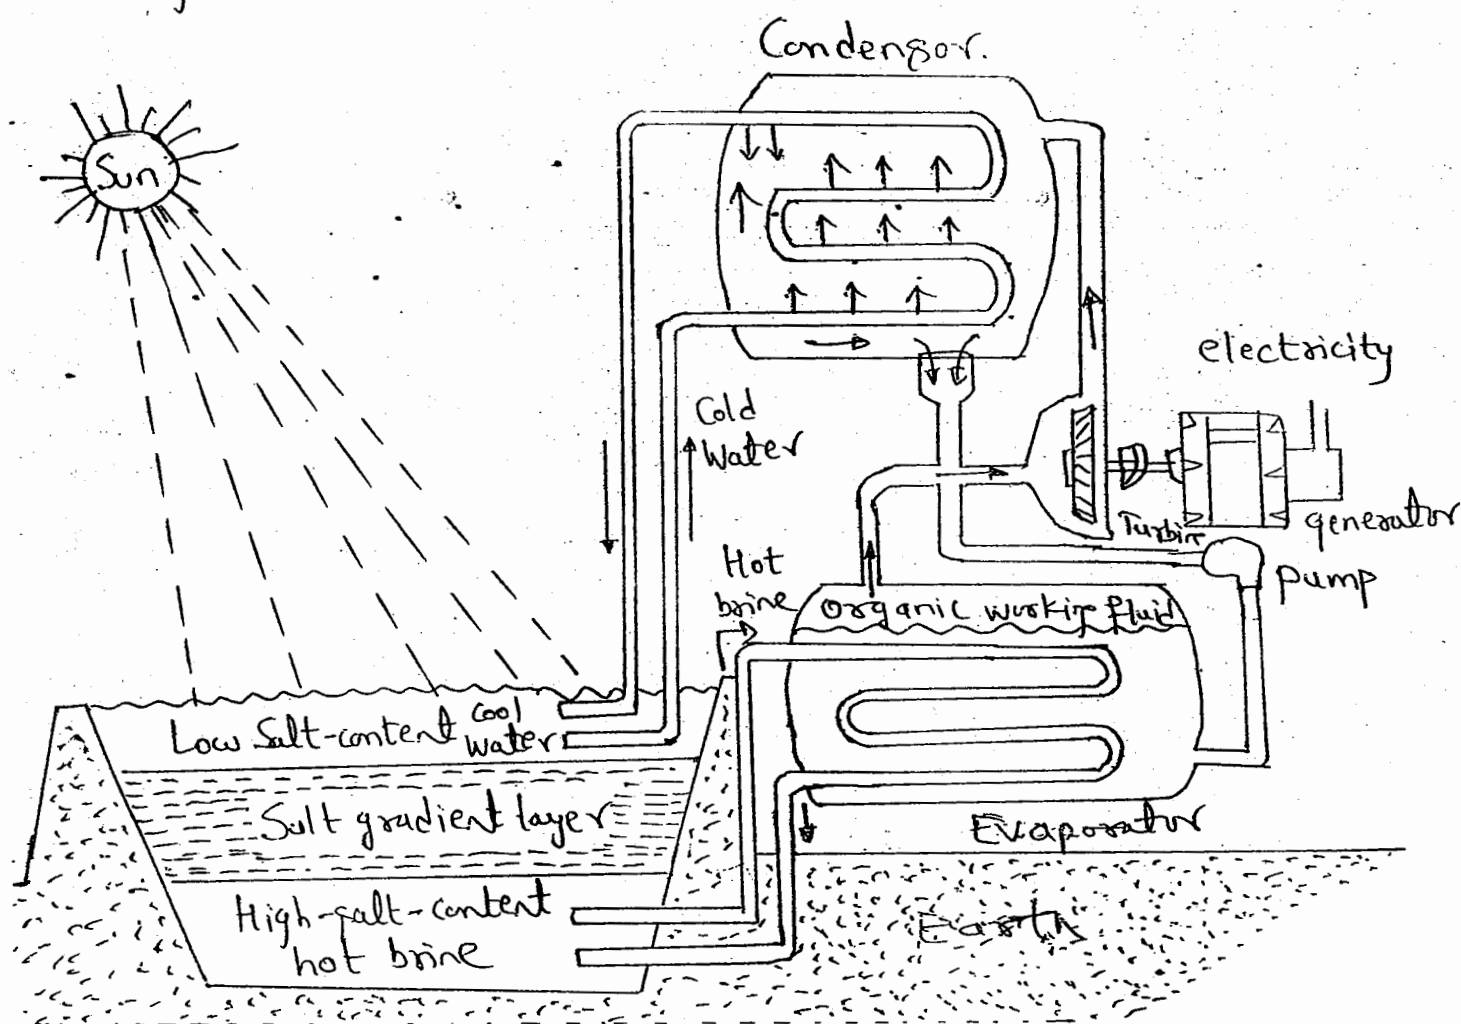 Condensor.
Sun
electricity
Cold
Water
generator
Turbine
Pump
Hot
brine
organic working fluid
Low Salt-content
Cool
Water
Salt gradient layer
Evaporator
High-salt-content
hot brine
Earth